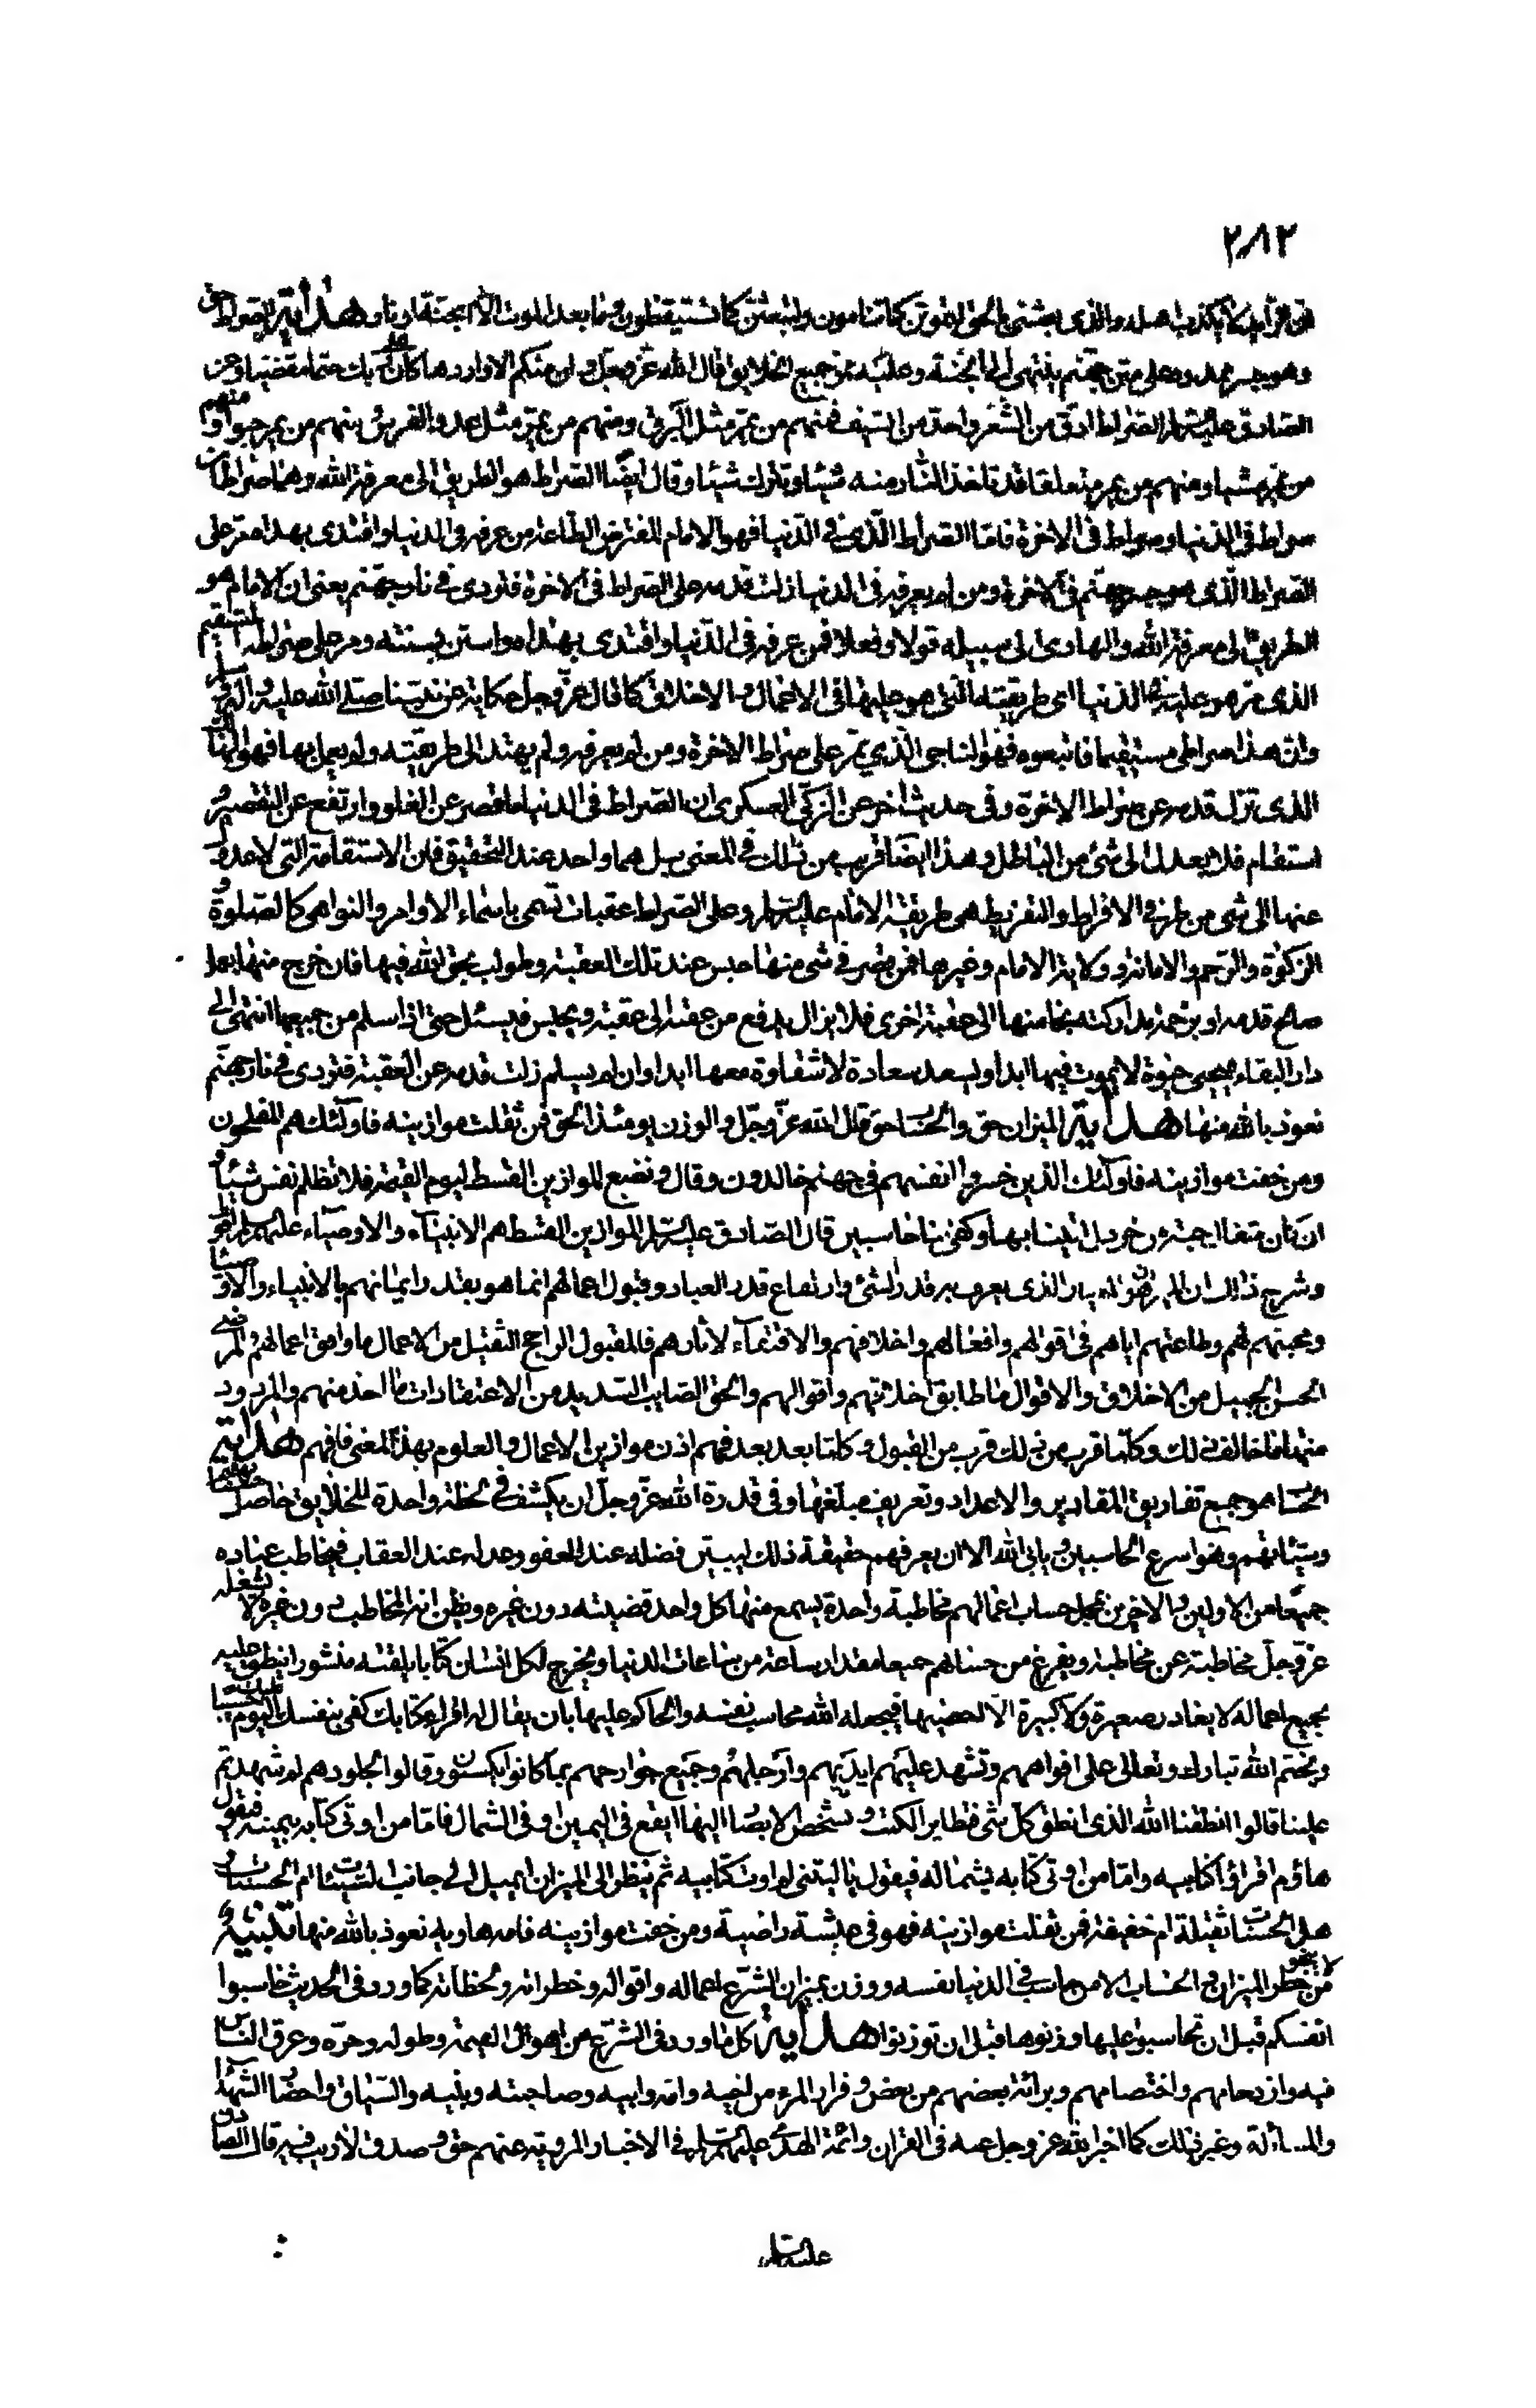 ٢٨٢
الرائد لا يكذب اهله والذى بعثنى بالحق لتموتن كما تنامون ولتبعثن كما تستيقظون وما بعد الموت الا جنة او نار هداية الصراط حق
وهو جسر ممدود على متن جهنم ينتهى الى الجنة وعليه ممر جميع الخلايق قال الله عز وجل وان منكم الا واردها كان على ربك حتما مقضيا وعن
الصادق عليه السلام الصراط ادق من الشعر واحد من السيف فمنهم من يمر مثل البرق ومنهم من يمر مثل عدو الفرس ومنهم من يمر حبوا ومنهم
من يمر مشيا ومنهم من يمر متعلقا قد تاخذ النار منه شيئا وتترك شيئا وقال ايضا الصراط هو الطريق الى معرفة الله وهما صراطان
صراط فى الدنيا وصراط فى الاخرة فاما الصراط الذى فى الدنيا فهو الامام المفترض الطاعة من عرفه فى الدنيا واقتدى بهداه مر على
الصراط الذى هو جسر جهنم فى الاخرة ومن لم يعرفه فى الدنيا زلت قدمه على الصراط فى الاخرة فتردى فى نار جهنم يعنى ان الامام هو
الطريق الى معرفة الله والهادى الى سبيله قولا وفعلا فمن عرفه فى الدنيا واقتدى بهداه واستن بسنته ومر على صراطه المستقيم
الذى مر هو عليه فى الدنيا اى طريقته التى هو عليها فى الاعمال والاخلاق كما قال عز وجل حكاية عن نبينا صلى الله عليه واله وسلم
وان هذا صراطى مستقيما فاتبعوه فهو الناجى الذى يمر على صراط الاخرة ومن لم يعرفه ولم يهتد الى طريقته ولم يعمل بها فهو الهالك
الذى تزل قدمه عن صراط الاخرة وفى حديث اخر عن الزكى العسكرى ان الصراط فى الدنيا ما قصر عن الغلو وارتفع عن التقصير و
استقام فلا يعدل الى شئ من الباطل وهذا ايضا قريب من ذلك فى المعنى بل هما واحد عند التحقيق فان الاستقامة التى لا عدول
عنها الى شئ من طرفى الافراط والتفريط هى طريقة الامام عليه السلام وعلى الصراط عقبات تسمى باسماء الاوامر والنواهى كالصلوة و
الزكوة والرحم والامانة وولاية الامام وغيرها فمن قصر فى شئ منها حبس عند تلك العقبة وطولب بحق الله فيها فان خرج منها بعمل
صالح قدمه او برحمة تداركته نجا منها الى عقبة اخرى فلا يزال يدفع من عقبة الى عقبة ويحبس فيسئل حتى اذا سلم من جميعها انتهى الى
دار البقاء فيحيى حيوة لا يموت فيها ابدا ويسعد سعادة لا شقاوة معها ابدا وان لم يسلم زلت قدمه عن العقبة فتردى فى نار جهنم
نعوذ بالله منها هداية الميزان حق والحساب حق قال الله عز وجل والوزن يومئذ الحق فمن ثقلت موازينه فاولئك هم المفلحون
ومن خفت موازينه فاولئك الذين خسروا انفسهم فى جهنم خالدون وقال ونضع الموازين القسط ليوم القيمة فلا تظلم نفس شيئا و
ان كان مثقال حبة من خردل اتينا بها وكفى بنا حاسبين قال الصادق عليه السلام الموازين القسط هم الانبياء والاوصياء عليهم السلام
وشرح ذلك ان الميزان هو المعيار الذى يعرف به قدر الشئ وارتفاع قدر العباد وقبول اعمالهم انما هو بقدر ايمانهم بالانبياء والاوصياء
ومحبتهم لهم وطاعتهم اياهم فى اقوالهم وافعالهم واخلاقهم والاقتفاء لاثارهم فالمقبول الراجح الثقيل من الاعمال ما وافق اعمالهم والمرضى
الحسن الجميل من الاخلاق والاقوال ما طابق اخلاقهم واقوالهم والحق الصايب السديد من الاعتقادات ما اخذ منهم والمردود
منها ما خالف ذلك وكلما قرب من ذلك قرب من القبول وكلما بعد بعد فهم اذن موازين الاعمال والعلوم بهذا المعنى فافهم هداية
الحساب هو جمع تفاريق المقادير والاعداد وتعريف مبلغها وفى قدرة الله عز وجل ان يكشف فى لحظة واحدة للخلايق حاصل حسناتهم
وسيئاتهم وهو اسرع الحاسبين ويابى الله الا ان يعرفهم حقيقة ذلك ليبين فضله عند العفو وعدله عند العقاب فيخاطب عباده
جميعا من الاولين والاخرين بمجمل حساب اعمالهم مخاطبة واحدة يسمع منها كل واحد قضيته دون غيره ويظن انه المخاطب دون غيره لا تشغله
عز وجل مخاطبة عن مخاطبة ويفرغ من حسابهم جميعا مقدار ساعة من ساعات الدنيا ويخرج لكل انسان كتابا يلقيه منشورا ينطق عليه
بجميع اعماله لا يغادر صغيرة ولا كبيرة الا احصيها فيجعله الله محاسب نفسه والحاكم عليها بان يقال له اقرا كتابك كفى بنفسك اليوم عليك حسيبا
ويختم الله تبارك وتعالى على افواههم وتشهد عليهم ايديهم وارجلهم وجميع جوارحهم بما كانوا يكسبون وقالوا لجلودهم لم شهدتم
علينا قالوا انطقنا الله الذى انطق كل شئ فتطاير الكتب وتشخص الابصار اليها ايقع فى اليمين او فى الشمال فاما من اوتى كتابه بيمينه فيقول
هاؤم اقرؤا كتابيه واما من اوتى كتابه بشماله فيقول يا ليتنى لم اوت كتابيه ثم ينظر الى الميزان ايميل الى جانب السيئات ام الحسنات و
هل الحسنات ثقيلة ام خفيفة فمن ثقلت موازينه فهو فى عيشة راضية ومن خفت موازينه فامه هاوية نعوذ بالله منها تنبيه لا ينجو
من خطر الميزان والحساب الا من حاسب فى الدنيا نفسه ووزن بميزان الشرع اعماله واقواله وخطراته ولحظاته كما ورد فى الحديث حاسبوا
انفسكم قبل ان تحاسبوا عليها وزنوها قبل ان توزنوا هداية كل ما ورد فى الشرع من اهوال القيمة وطوله وحره وعرق الناس
فيه وازدحامهم واختصامهم وبرائة بعضهم من بعض وفرار المرء من اخيه وامه وابيه وصاحبته وبنيه والسياق واحضار الشهداء
والمسائلة وغير ذلك كما اخبر الله عز وجل عنه فى القران وائمة الهدى عليهم السلام فى الاخبار المروية عنهم حق وصدق لا ريب فيه قال الصادق
عليه السلام